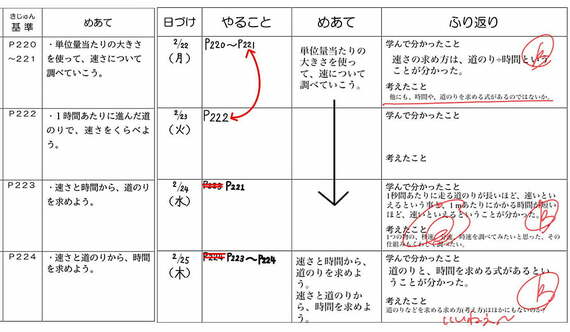 きじゅん
基準
めあて
日づけ
やること
めあて
ふり返り
P220
～221
・単位量当たりの大きさ
を使って、速さについて
調べていこう。
2/22
(月)
P220～P221
単位量当たりの
大きさを使っ
て、速について
調べていこう。
学んで分かったこと
速さの求め方は、道のり÷時間という
ことが分かった。
考えたこと
他にも、時間や、道のりを求める式があるのではないか。
P222
・1時間あたりに進んだ道
のりで、速さをくらべよ
う。
2/23
(火)
P222
学んで分かったこと
考えたこと
P223
・速さと時間から、道のり
を求めよう。
2/24
(水)
P223 P221
学んで分かったこと
1秒間あたりに走る道のりが長いほど、速いとい
えるという事と、1mあたりにかかる時間が短い
ほど、速いといえるということが分かった。
考えたこと
1つの物の、秒速、分速、時速を調べてみたいと思った、その
仕組みもくわしく調べたい。
P224
・速さと道のりから、時間
を求めよう。
2/25
(木)
P224 P223～P224
速さと時間から、
道のりを求めよ
う。
速さと道のりか
ら、時間を求めよ
う。
学んで分かったこと
道のりと、時間を求める式があるとい
うことが分かった。
考えたこと
道のりなどを求める求め方(考え方)はほかにもないのか?
いいねぇ～